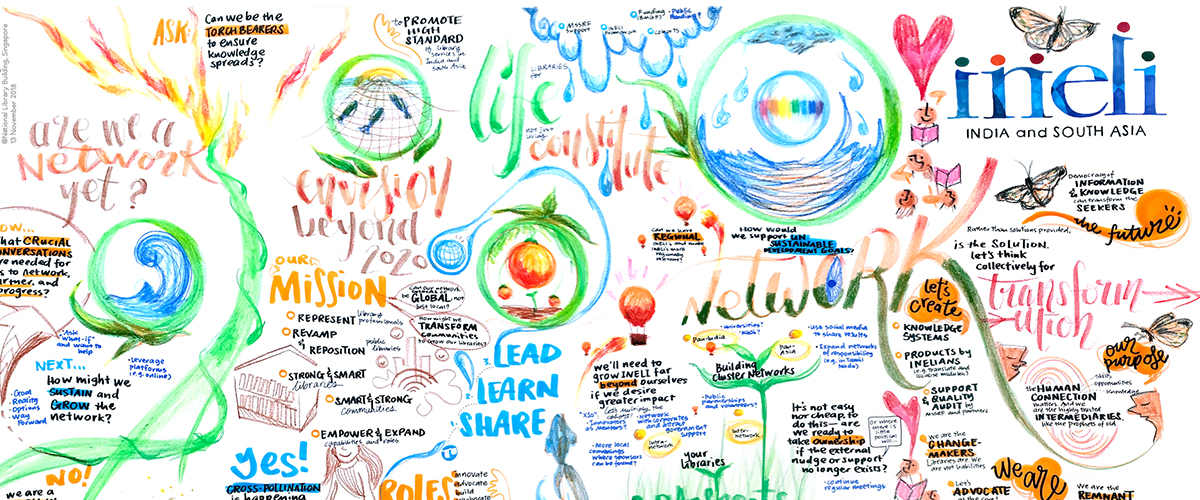 @National Library Building, Singapore
13 November 2018
ASK:
Can we be the
TORCHBEARERS
to ensure
knowledge
spreads??
are we a
NETWORK
yet?
NOW...
What CRUCIAL
CONVERSATIONS
are needed for
us to network,
partner, and
progress?
•Ask
"What-if"
and want to
help
NEXT...
How might we
SUSTAIN and
GROW the
network?
•Goal
Reality
Options
Way
Forward
•Leverage
platforms
(e.g. online)
NO!
we are a
to PROMOTE
HIGH
STANDARD
of library
services in
India and
South Asia
envision
beyond
2020
OUR
MISSION
REPRESENT library
professionals
REVAMP
& REPOSITION
public
libraries
STRONG & SMART
libraries
SMART & STRONG
communities
EMPOWER & EXPAND
capabilities and roles
Can our network
be GLOBAL, not
just local?
How might we
TRANSFORM
communities
to grow our libraries?
yes!
CROSS-POLLINATION
is happening
1. LEAD
2. LEARN
3. SHARE
ROLES
innovate
advocate
build
life
LIBRARIES
for
not just
living
constitute
MSSRF
support
INELI
framework
Funding
(BMGF)
Public
Funding?
cohorts
Can we have
REGIONAL
INELIs and make
INELI more
regionally
relevant?
HOW would
we support UN
SUSTAINABLE
DEVELOPMENT GOALS?
NETWORK
we'll need to
grow INELI far
beyond ourselves
if we desire
greater impact
Let's multiply the
cohorts!
•Innovators
as Mentors
•Network with
corporates
and attract
government
support
•More local
convenings
where sponsors
can be found?
•Universities?
•NGOs?
Pan-India
Pan-
Asia
Building
Cluster Networks
•Public
partnerships
and volunteers?
Intra-
network
Inter-
Network
your
Libraries
•Use social media
to share results
•Expand networks
of responsibility
(e.g. in Tamil
Nadu)
It's not easy
nor cheap, to
do this— are
we ready to
take ownership
if the external
nudge or support
no longer exists?
•continue
regular meetings
Or where
there is
little
political
will...
ineli
INDIA and SOUTH ASIA
Democracy of
INFORMATION
& KNOWLEDGE
can transform the
SEEKERS
the future!
Rather than solutions provided,
is the SOLUTION.
let's think
collectively for
transformation
let's
create
KNOWLEDGE
SYSTEMS
PRODUCTS by
INELIANS
(e.g. translate and
localise modules)
SUPPORT
& QUALITY
AUDIT by
MSSRF and partners
we are the
CHANGE-
MAKERS
Libraries are. We
are not liabilities
•Let's
ADVOCATE
our
purpose
•skills
opportunities
knowledge
the HUMAN
CONNECTION
matters. And we
are the highly trusted
INTERMEDIARIES
like the Prophets of old
we are
We are the
REMNANT